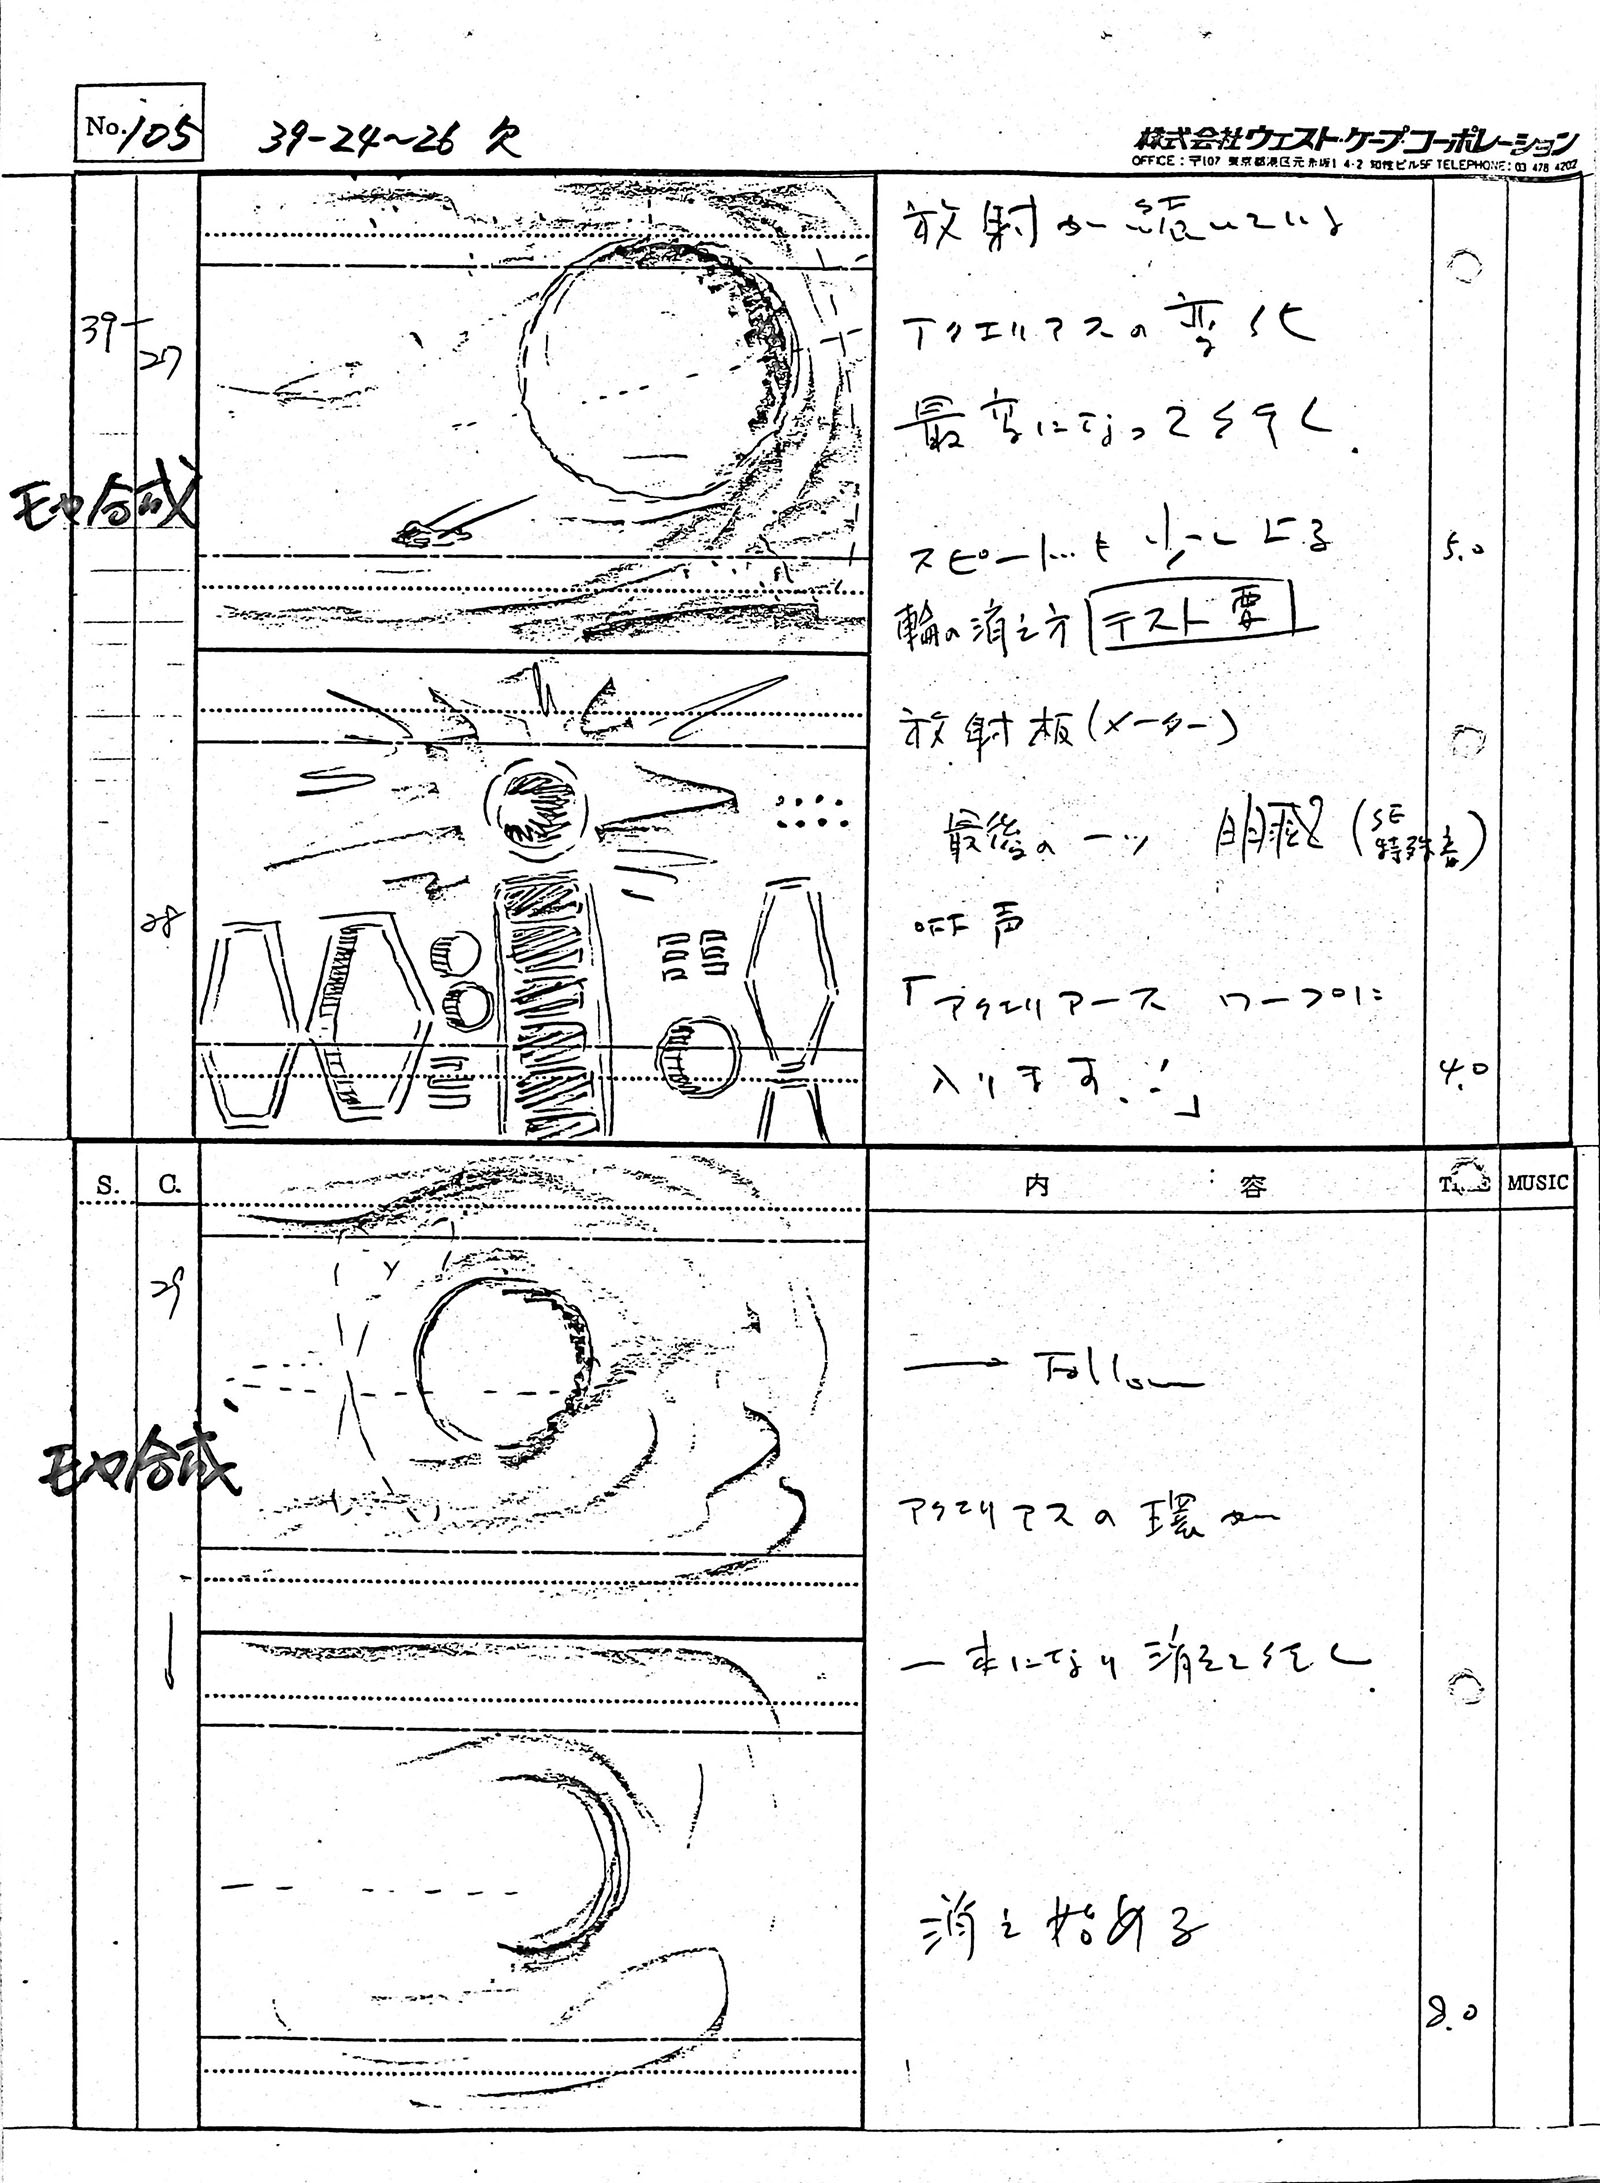 No. 105
39-24~26 欠
株式会社ウェスト・ケープ・コーポレーション
OFFICE：〒107 東京都港区元赤坂1 4-2 知性ビル5F TELEPHONE：03 478 4202
39-27
モヤ合成
放射が続いている
アクエリアスの変化
最高になってらしく
スピードも少し上る
5.0
輪の消え方 テスト要
28
放射板(メーター)
最後の一ツ 明滅 (SE 特殊音)
OFF声
「アクエリアース ワープに
入ります.!」
4.0
S. C. 内 容 TIME MUSIC
29
モヤ合成
→ Follow
アクエリアスの環が
一本になり消えて
消え始める
8.0